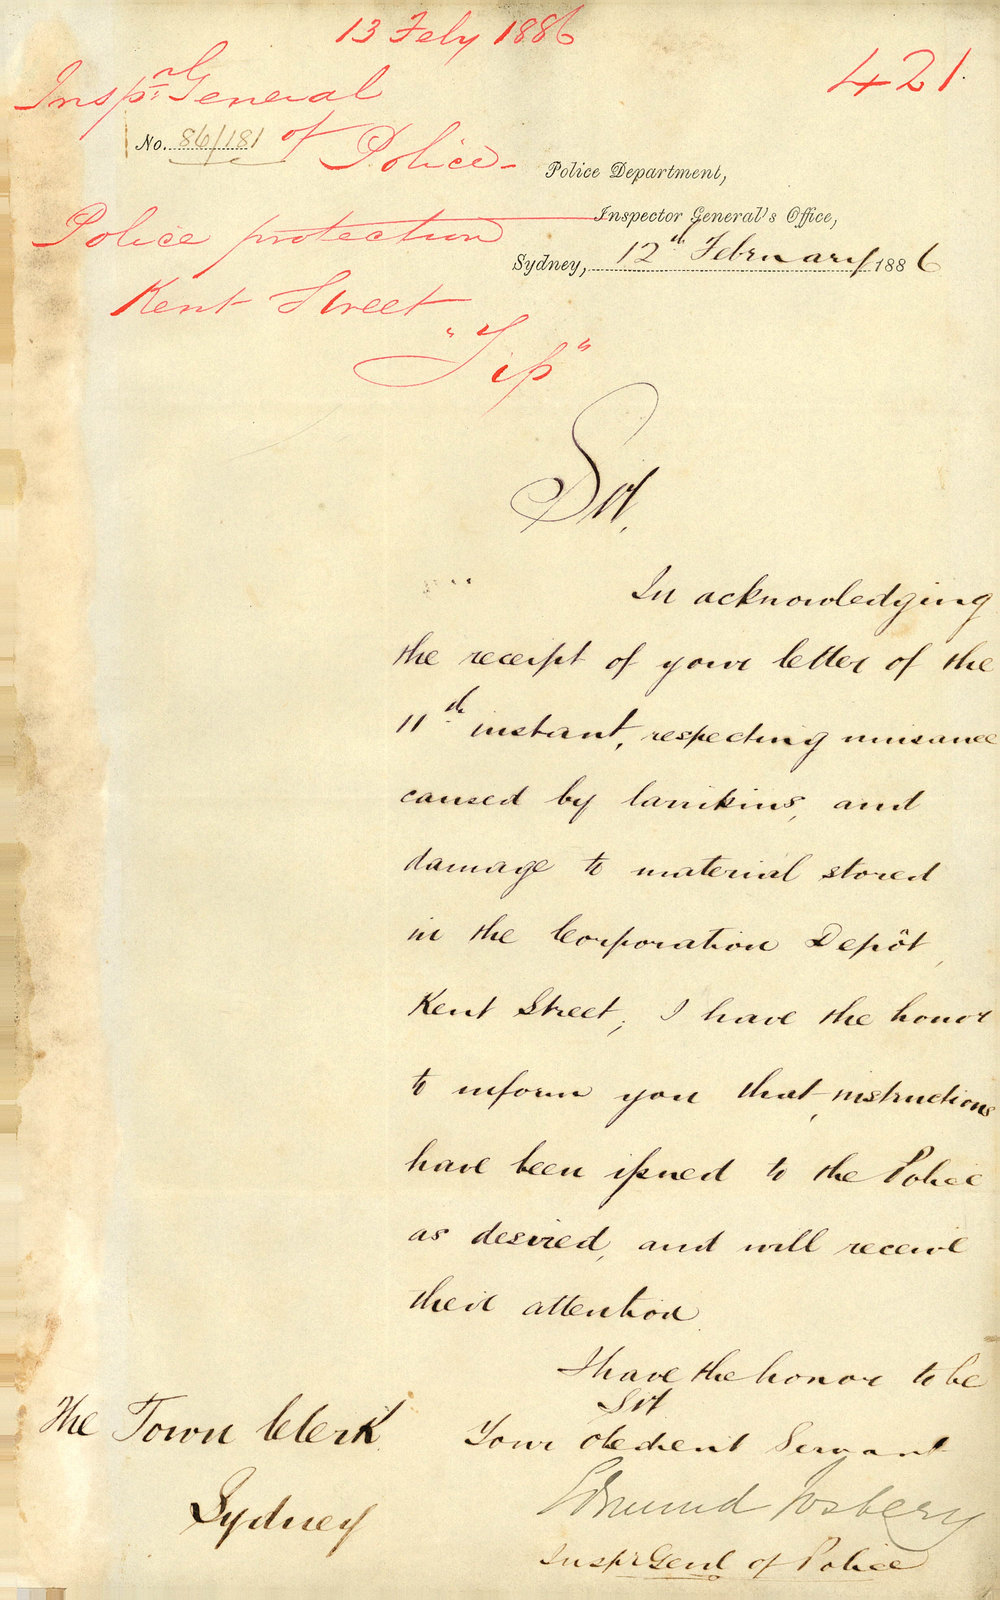 13 Feby 1886
421
Inspr General
of Police -
No. 86/181
Police Department,
Inspector General's Office,
Sydney, 12th February 1886
Police protection
Kent Street
"Tip"
Sir,
In acknowledging
the receipt of your letter of the
11th instant, respecting nuisance
caused by larrikins, and
damage to material stored
in the Corporation Depôt,
Kent Street; I have the honor
to inform you that, instructions
have been issued to the Police
as desired, and will receive
their attention
I have the honor to be
Sir
Your Obedient Servant
Edmund Fosbery
Inspr Genl of Police
The Town Clerk
Sydney